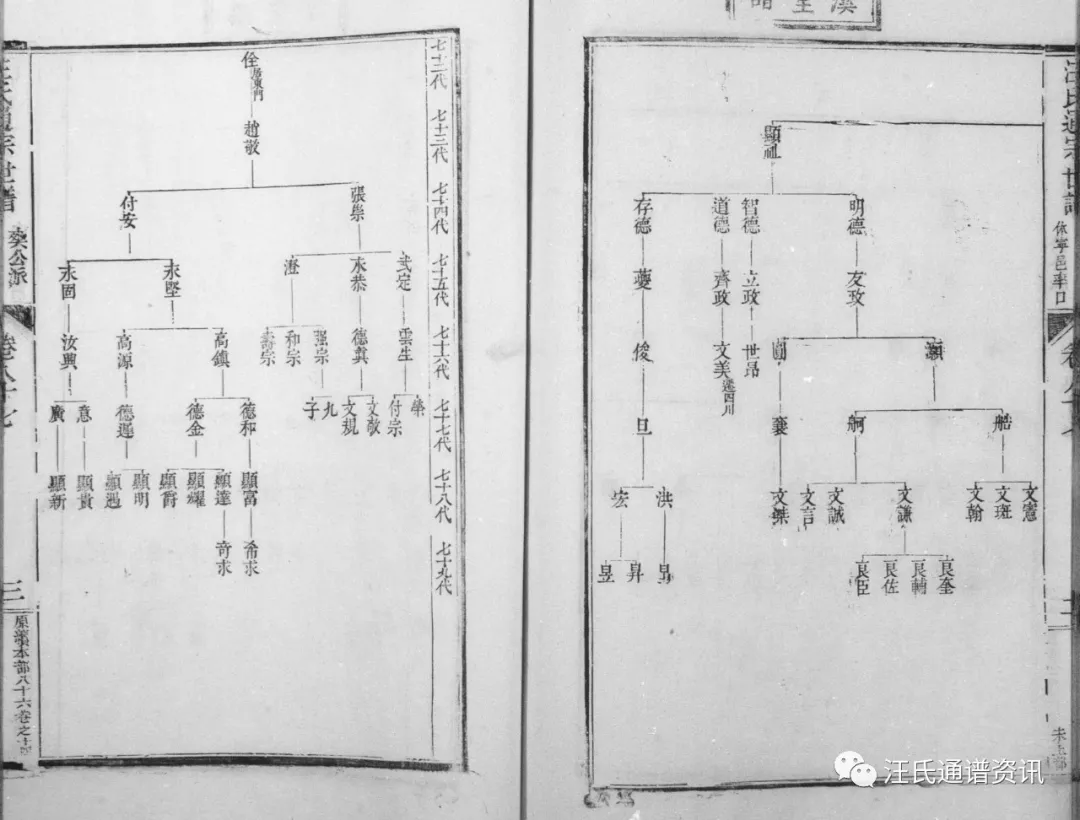 汪氏通宗世譜
休寧邑華口
顯祖
明德
智德
道德
存德
友政
立政
齊政
夔
顥
圓
世昂
文美 遷四川
俊
船
舸
襄
旦
文憲
文斑
文翰
文謙
文誠
文言
文榤
洪
宏
良奎
良輔
良佐
良臣
昇
昱
七十二代
七十三代
七十四代
七十五代
七十六代
七十七代
七十八代
七十九代
佺 居東門
趙敬
張祟
付安
武定
永恭
澄
永堅
永固
雲生
德真
强宗
和宗
壽宗
高鎮
高源
汝興
榮
付宗
文敬
文規
九子
德和
德金
德運
意
廣
顯富
顯達
顯耀
顯爵
顯明
顯遇
顯貴
顯新
希求
奇求
汪氏通宗世譜
爽公派
卷八十七
三
原溪本部八十六卷之十四
汪氏通谱资讯